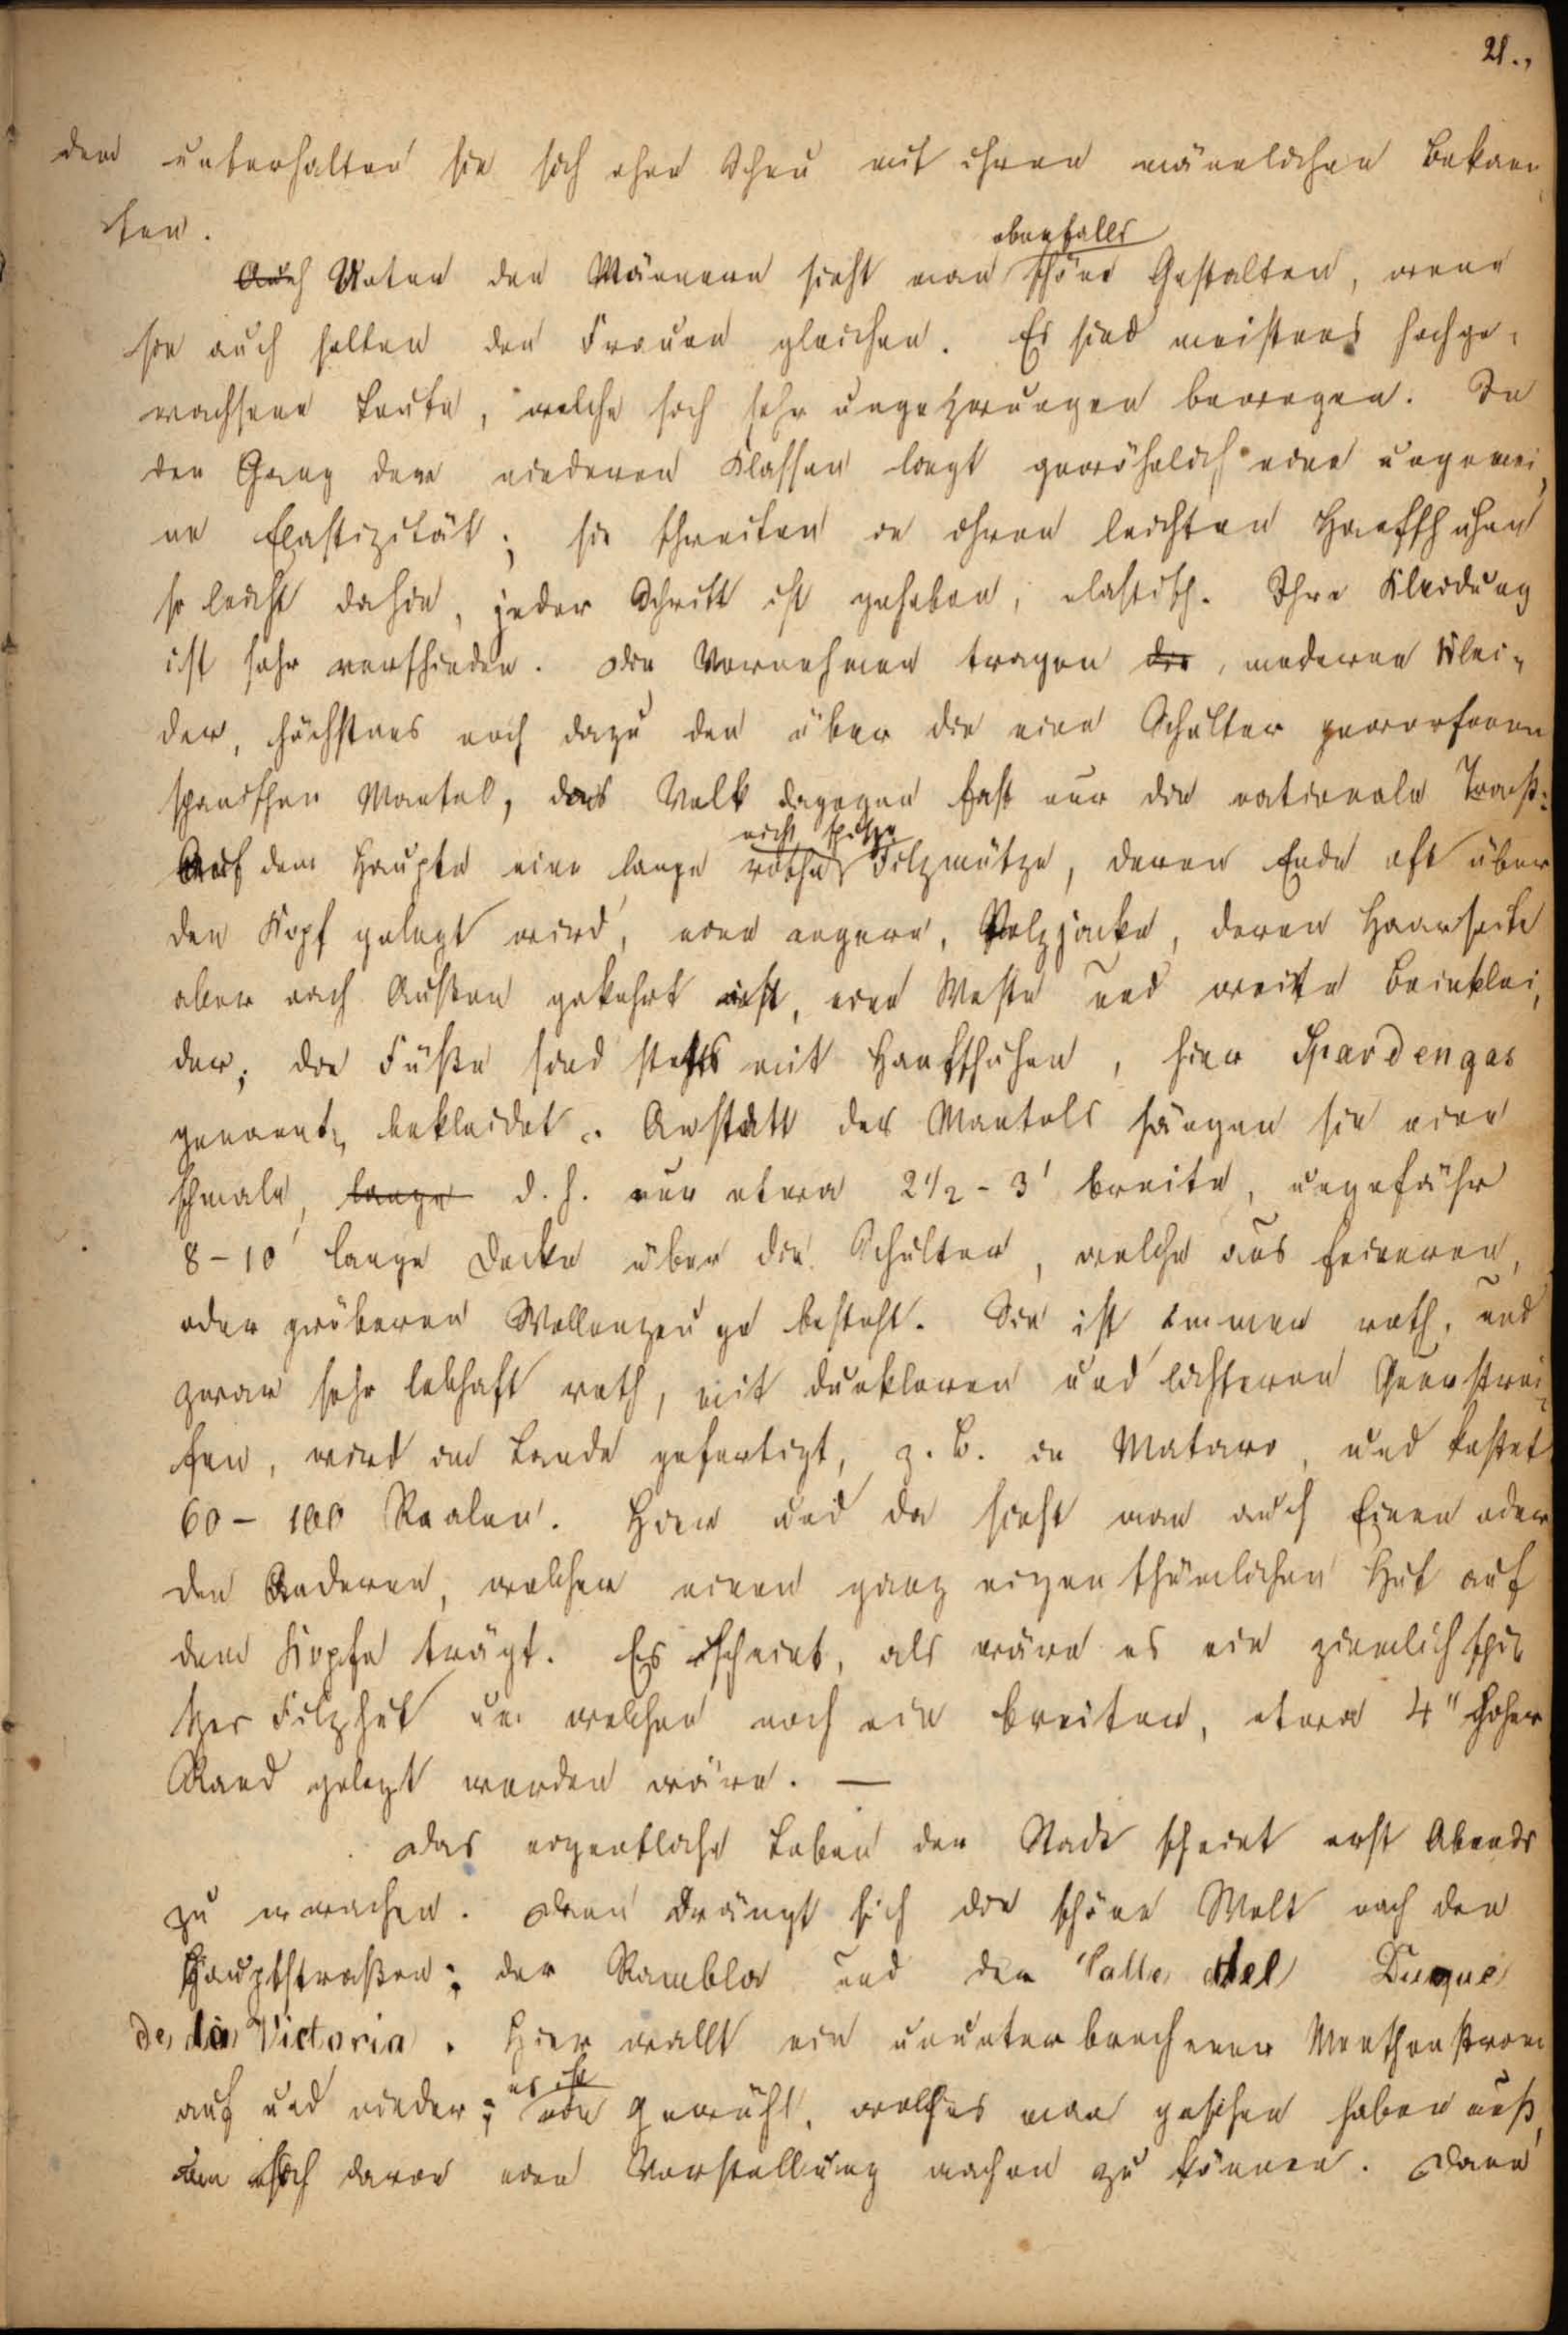 21.,
den unterhalten sie sich ohne Scheu mit ihren männlichen Bekann-
ten.
ebenfalls
Auch Unter den Männern sieht man schöne Gestalten, wenn
sie auch selten den Frauen gleichen. Es sind meistens hochge-
wachsene Leute, welche sich sehr ungezwungen bewegen. In
den Gang der niederen Klassen liegt gewöhnlich eine ungemei-
ne Elastizität; sie schreiten in ihren leichten Hanfschuhen
so leicht dahin, jeder Schritt ist gehoben, elastisch. Ihre Kleidung
ist sehr verschieden. Die Vornehmen tragen die, moderne Klei-
der, höchstens noch dazu den über die eine Schulter geworfenen
spanischen Mantel, das Volk dagegen fast nur die nationale Tracht:
nicht spitze
Auf dem Haupte eine lange rothe Filzmütze, deren Ende oft über
den Kopf gelegt wird, eine engere, Pelzjacke, deren Haarseite
aber nach Außen gekehrt ist, eine Weste und weite Beinklei-
der; die Füße sind stets mit Hanfschuhen, hier Spardengas
genannt, bekleidet. Anstatt des Mantels hängen sie eine
schmale, lange d. h. nur etwa 2 1/2 - 3' breite, ungefähr
8-10' lange Decke über die Schulter, welche aus feineren,
oder gröberen Wollenzeuge besteht. Sie ist immer roth, und
zwar sehr lebhaft roth, mit dunkleren und lichteren Querstrei-
fen, wird im Lande gefertigt, z. B. in Mataro, und kostet
60 - 100 Realen. Hier und da sieht man auch Einen oder
den Anderen, welcher einen ganz eigenthümlichen Hut auf
dem Kopfe trägt. Es scheint, als wäre es ein ziemlich spi-
tzer Filzhut um welchen noch ein breiter, etwa 4" hoher
Rand gelegt worden wäre. —
Das eigentliche Leben der Stadt scheint erst Abends
zu erwachen. Dann drängt sich die schöne Welt nach den
Hauptstraßen: der Rambla und der Calle del Duque
de la Victoria. Hier wallt ein ununterbrochener Menschenstrom
es ist
auf und nieder; ein Gewühl, welches man gesehen haben muß,
um sich davon eine Vorstellung machen zu können. Dann